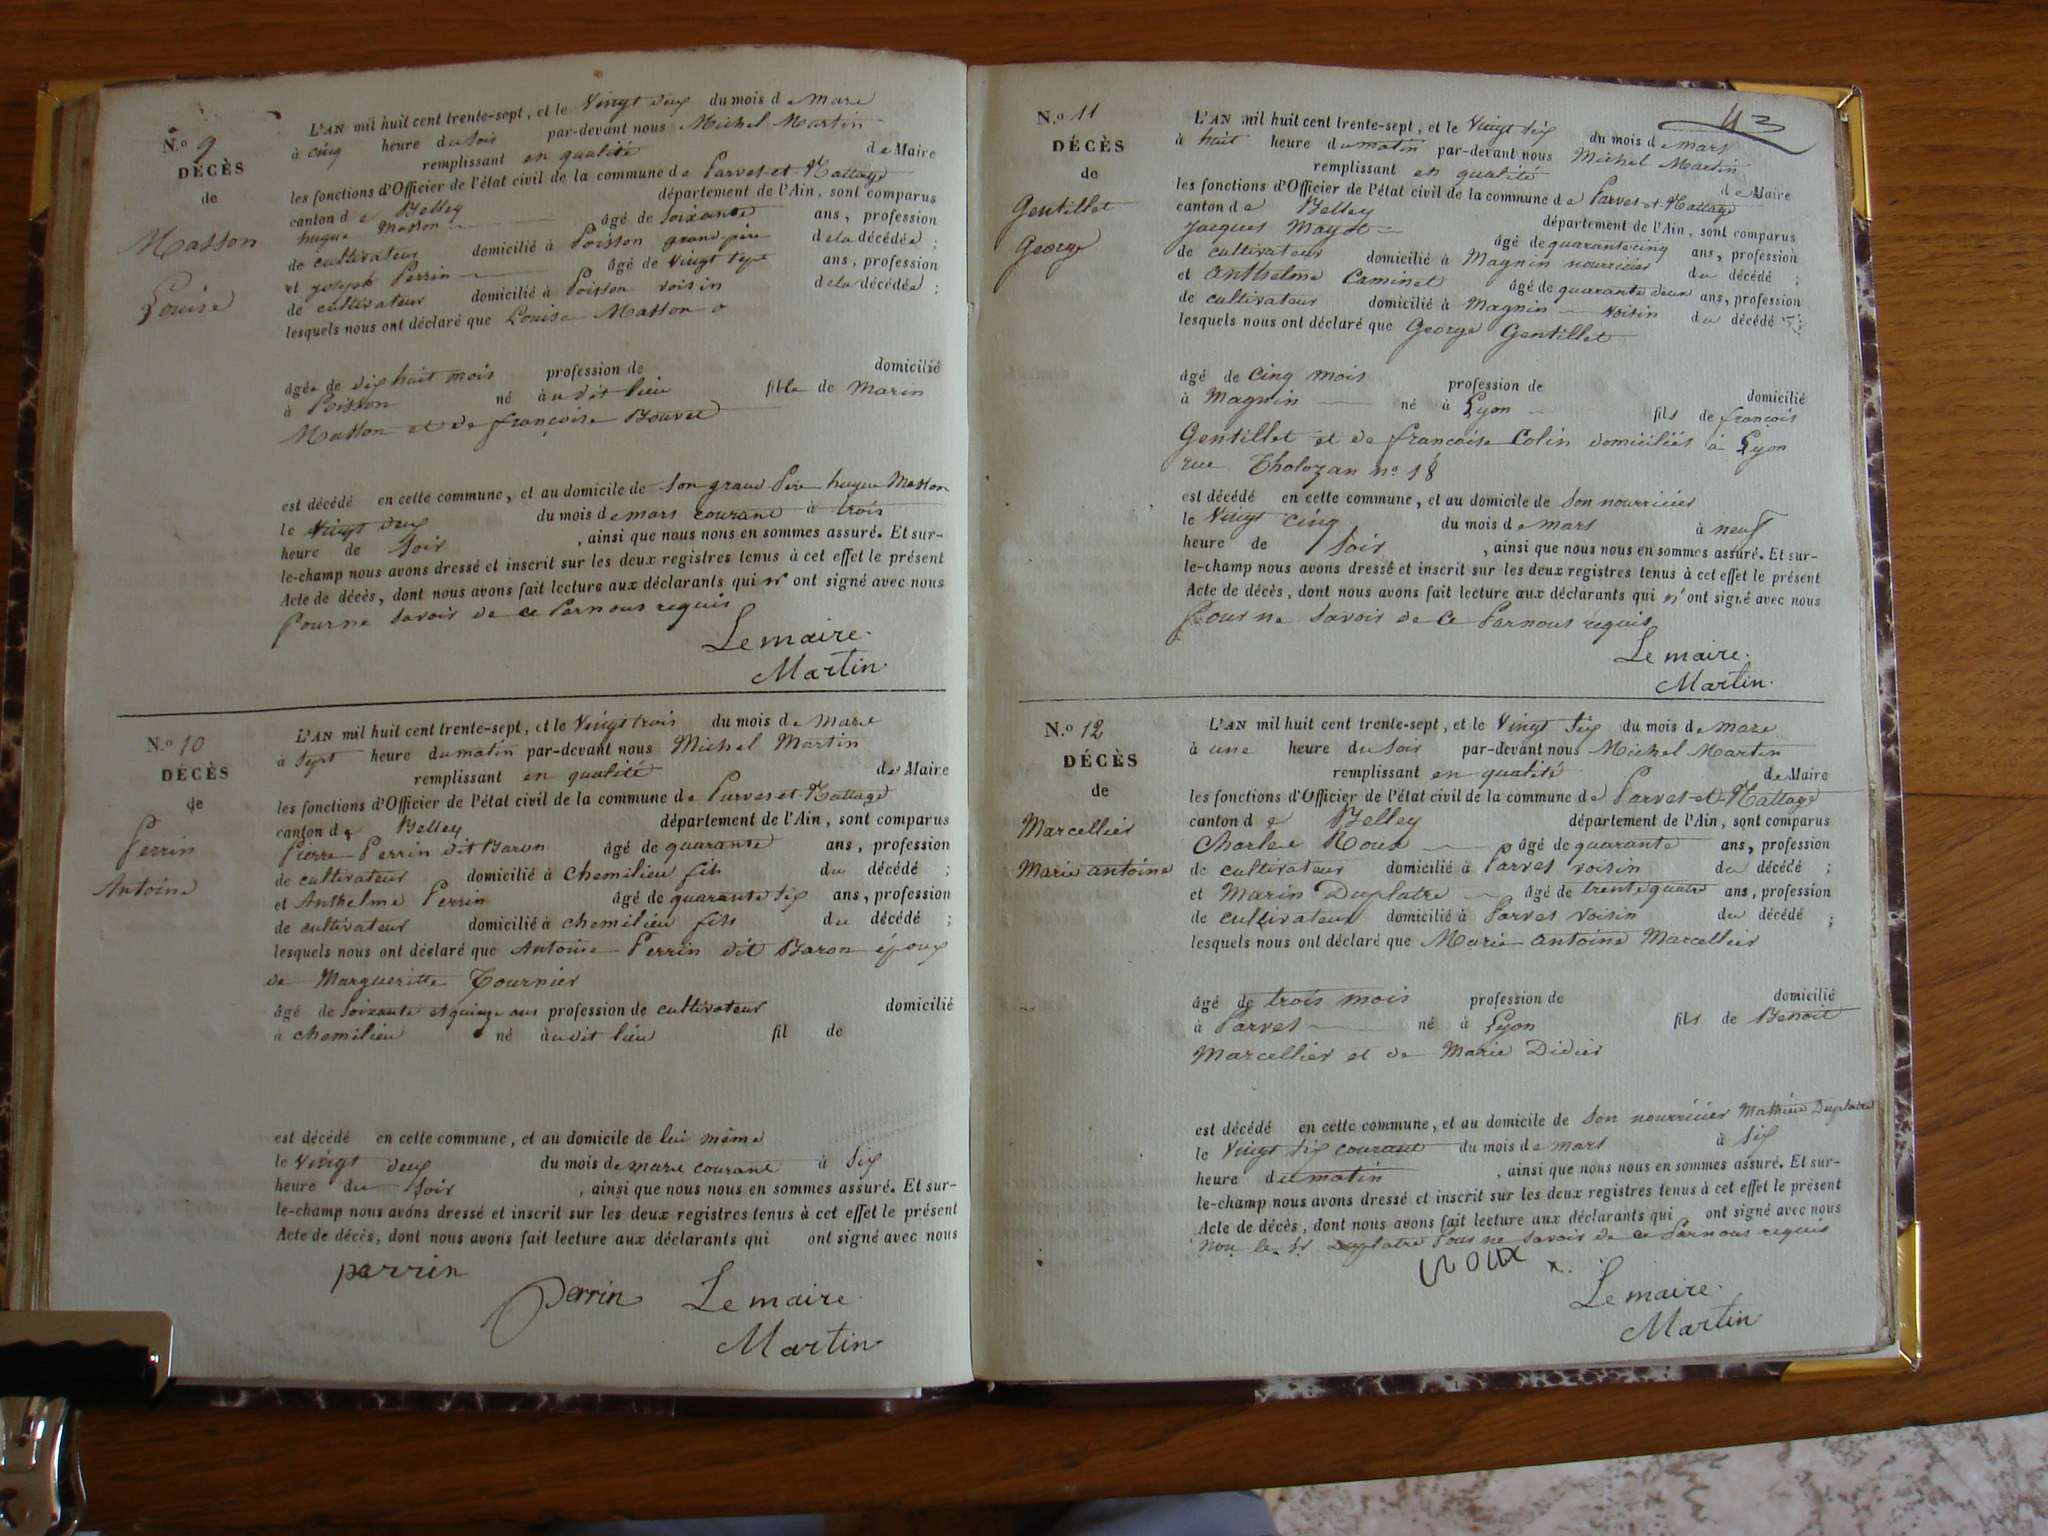 N.º 9
DÉCÈS
de
Masson
Louise
L'AN mil huit cent trente-sept, et le Vingt deux du mois de mars
à cinq heure du soir par-devant nous Michel Martin
remplissant en qualité de Maire
les fonctions d'Officier de l'état civil de la commune de Parves-et-Nattage
canton de Belley département de l'Ain, sont comparus
hugue Masson âgé de soixante ans, profession
de cultivateur domicilié à Poisson grand père de la décédée ;
et joseph Perrin âgé de vingt sept ans, profession
de cultivateur domicilié à Poisson voisin de la décédée ;
lesquels nous ont déclaré que Louise Masson
âgée de dix huit mois profession de domicilié
à Poisson né audit lieu fille de Marin
Masson et de françoise Bouvet
est décédé en cette commune, et au domicile de son grand Père hugue Masson
le vingt deux du mois de mars courant à trois
heure de soir , ainsi que nous nous en sommes assuré. Et sur-
le-champ nous avons dressé et inscrit sur les deux registres tenus à cet effet le présent
Acte de décès, dont nous avons fait lecture aux déclarants qui n' ont signé avec nous
Pour ne savoir de ce Par nous requis
Le maire.
Martin.
N.º 10
DÉCÈS
de
Perrin
Antoine
L'AN mil huit cent trente-sept, et le Vingt trois du mois de mars
à sept heure du matin par-devant nous Michel Martin
remplissant en qualité de Maire
les fonctions d'Officier de l'état civil de la commune de Parves et-Nattage
canton de Belley département de l'Ain, sont comparus
Pierre Perrin dit Baron âgé de quarante ans, profession
de cultivateur domicilié à chemilieu fils du décédé ;
et Anthelme Perrin âgé de quarante six ans, profession
de cultivateur domicilié à chemilieu fils du décédé ;
lesquels nous ont déclaré que Antoine Perrin dit Baron époux
de Margueritte Tournier
âgé de soixante et quinze ans profession de cultivateur domicilié
à chemilieu né audit lieu fil de
est décédé en cette commune, et au domicile de lui même
le vingt deux du mois de mars courant à six
heure du soir , ainsi que nous nous en sommes assuré. Et sur-
le-champ nous avons dressé et inscrit sur les deux registres tenus à cet effet le présent
Acte de décès, dont nous avons fait lecture aux déclarants qui ont signé avec nous
perrin
Perrin Le maire.
Martin
43
N.º 11
DÉCÈS
de
Gentillet
George
L'AN mil huit cent trente-sept, et le Vingt six du mois de mars
à huit heure du matin par-devant nous Michel Martin
remplissant en qualité de Maire
les fonctions d'Officier de l'état civil de la commune de Parves-et-Nattage
canton de Belley département de l'Ain, sont comparus
Jacques âgé de quarante cinq ans, profession
de cultivateur domicilié à Magnin nourricier du décédé ;
et Anthelme Caminet âgé de quarante deux ans, profession
de cultivateur domicilié à Magnin voisin du décédé ;
lesquels nous ont déclaré que George Gentillet
âgé de cinq mois profession de domicilié
à Magnin né à Lyon fils de françois
Gentillet et de françoise Colin domiciliés à Lyon
rue Tholozan nº 18
est décédé en cette commune, et au domicile de son nourricier
le vingt cinq du mois de mars à neuf
heure de soir , ainsi que nous nous en sommes assuré. Et sur-
le-champ nous avons dressé et inscrit sur les deux registres tenus à cet effet le présent
Acte de décès, dont nous avons fait lecture aux déclarants qui n'ont signé avec nous
Pour ne savoir de ce Par nous requis
Le maire.
Martin.
N.º 12
DÉCÈS
de
Marcellier
Marie antoine
L'AN mil huit cent trente-sept, et le Vingt six du mois de mars
à une heure du soir par-devant nous Michel Martin
remplissant en qualité de Maire
les fonctions d'Officier de l'état civil de la commune de Parves-et-Nattage
canton de Belley département de l'Ain, sont comparus
Charles Roux âgé de quarante ans, profession
de cultivateur domicilié à Parves voisin du décédé ;
et Marin Duplatre âgé de trente quatre ans, profession
de cultivateur domicilié à Parves voisin du décédé ;
lesquels nous ont déclaré que Marie antoine Marcellier
âgé de trois mois profession de domicilié
à Parves né à Lyon fils de Benoit
Marcellier et de Marie Didier
est décédé en cette commune, et au domicile de son nourricier Mathieu Duplatre
le vingt six courant du mois de mars à six
heure du matin , ainsi que nous nous en sommes assuré. Et sur-
le-champ nous avons dressé et inscrit sur les deux registres tenus à cet effet le présent
Acte de décès, dont nous avons fait lecture aux déclarants qui ont signé avec nous
non le Sr Duplatre Pour ne savoir de ce Par nous requis
roux
Le maire.
Martin